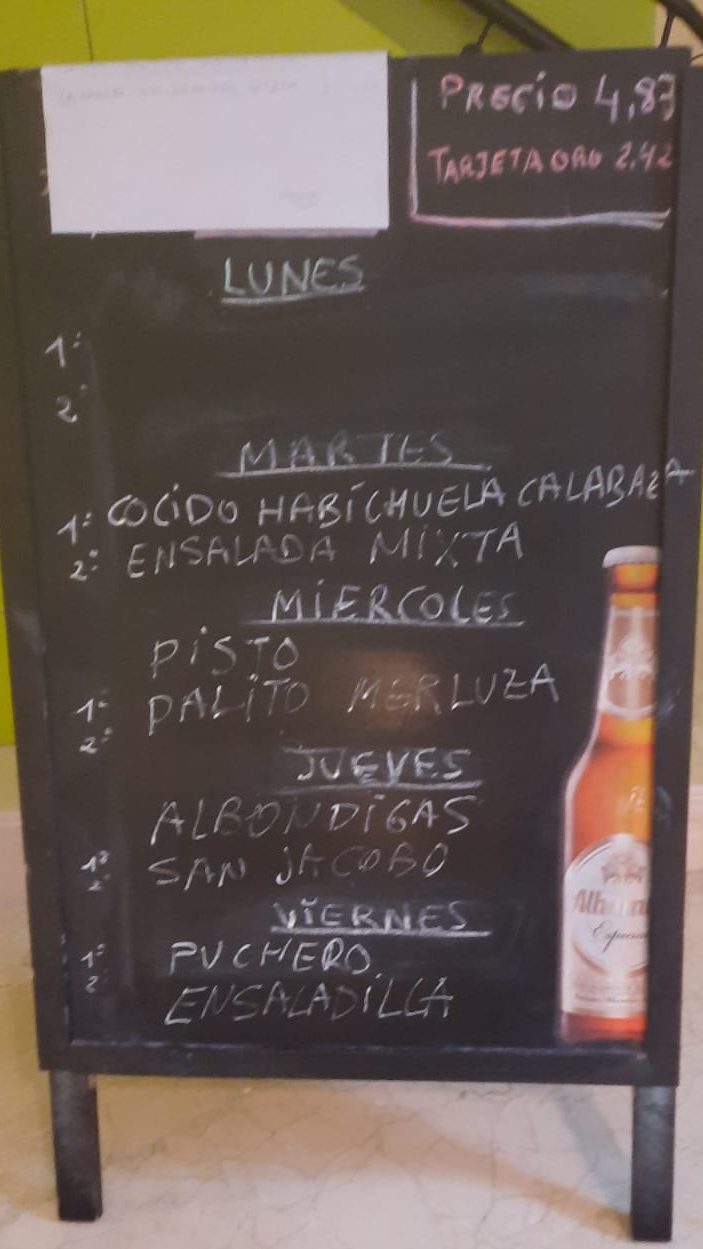 PRECIO 4,83
TARJETA ORO 2,42
LUNES
1º
2º
MARTES
1º COCIDO HABICHUELA CALABAZA
2º ENSALADA MIXTA
MIERCOLES
PISTO
1º PALITO MERLUZA
2º
JUEVES
ALBONDIGAS
1º SAN JACOBO
2º
VIERNES
1º PUCHERO
2º ENSALADILLA
Especial